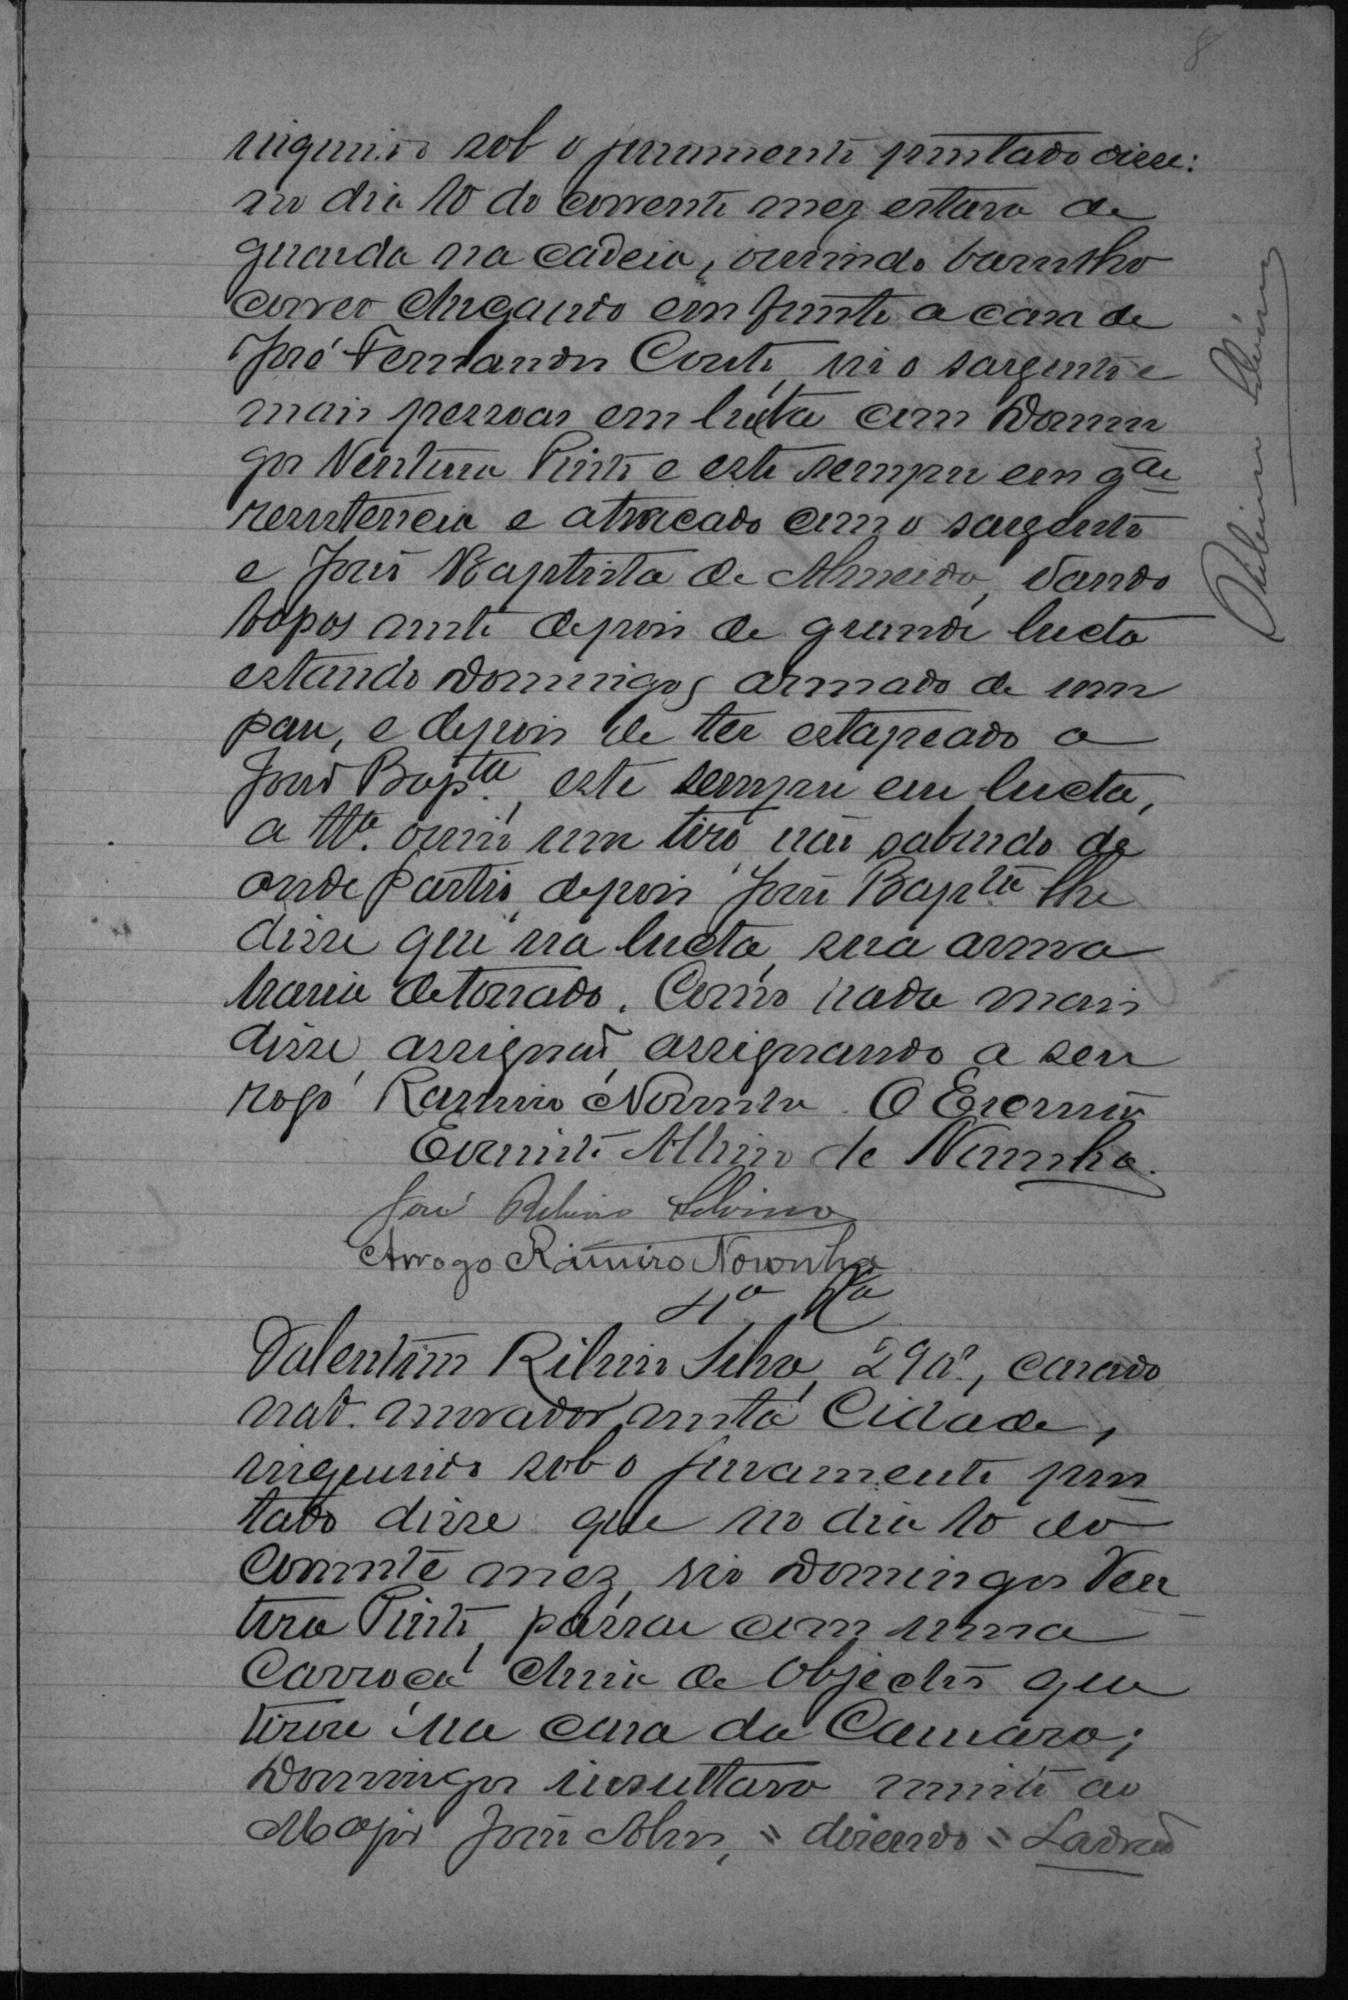 8
inquirido sob o juramento prestado disse:
no dia 10 do corrente mez estava de
guarda na cadeia, ouvindo barulho
correo chegando em frente a casa de
José Fernandes Couto, vio o sargento e
mais pessoas em lucta com Domin
gos Ventura Pinto e este sempre em gde
resistencia e atracado com o sargento
e João Baptista de Almeida, dando
topos neste depois de grande lucta
estando Domingos armado de um
pau, e depois de ter estapeado a
João Bapta, este sempre em lucta,
a tta. ouvio um tiro não sabendo de
onde partio, depois João Bapta lhe
disse que na lucta, sua arma
havia detonado. Como nada mais
disse, assignou, assignando a seu
rogo Ramiro Noronha. O Escrivão
Evaristo Albino de Noronha.
José Ribeiro Silvino
Arrogo Ramiro Noronha
4a tta
Valentim Ribeiro Silva, 29 as., casado
nat. morador nesta Cidade,
inquirido sob o juramento pres
tado disse que no dia 10 do
corrente mez, vio Domingos Ven
tura Pinto, passar com uma
Carroça cheia de objectos que
tivera na casa da Camara;
Domingos insultava muito ao
Major João Alves, = disendo = Ladrão
Ribeiro Silvino